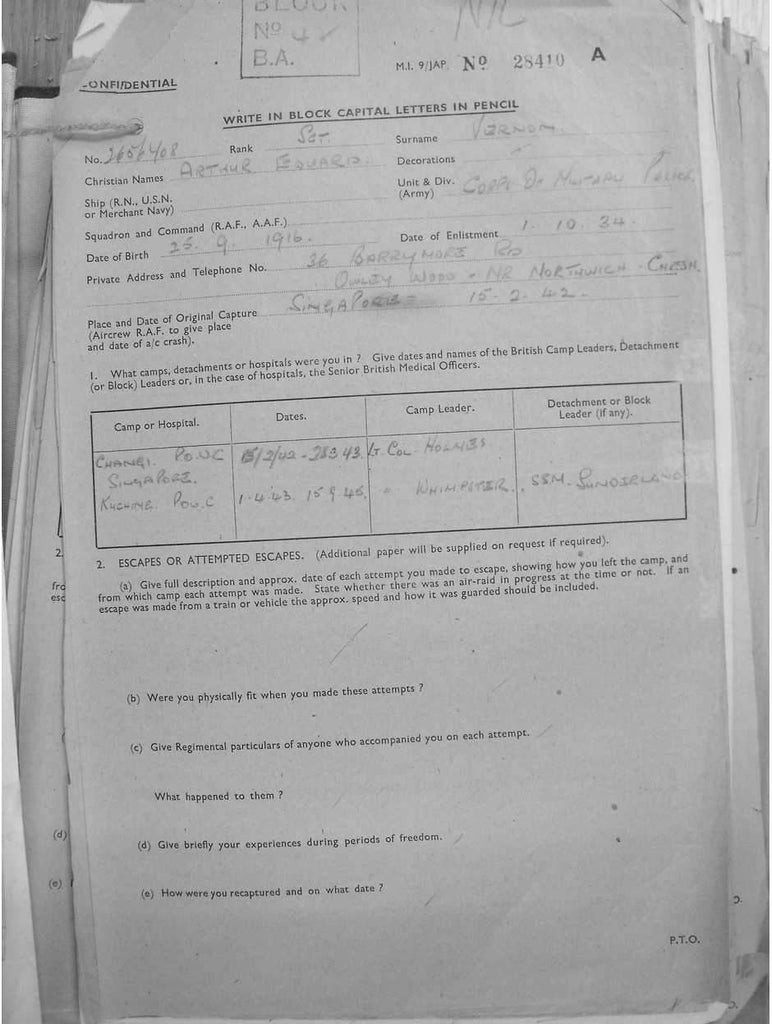 BLOCK
Nº
B.A.
NIL
M.I. 9/JAP. Nº 28410 A
CONFIDENTIAL
WRITE IN BLOCK CAPITAL LETTERS IN PENCIL
No. 2656408 Rank SGT. Surname VERNON.
Christian Names ARTHUR EDWARD. Decorations
Ship (R.N., U.S.N. or Merchant Navy) Unit & Div. (Army) CORPS OF MILITARY POLICE
Squadron and Command (R.A.F., A.A.F.)
Date of Birth 25. 9. 1916. Date of Enlistment 1. 10. 34.
Private Address and Telephone No. 36 BARRYMORE RD
OWLEY WOOD - NR NORTHWICH - CHESH.
Place and Date of Original Capture SINGAPORE - 15-2-42.
(Aircrew R.A.F. to give place
and date of a/c crash).
1. What camps, detachments or hospitals were you in ? Give dates and names of the British Camp Leaders, Detachment
(or Block) Leaders or, in the case of hospitals, the Senior British Medical Officers.
Camp or Hospital. Dates. Camp Leader. Detachment or Block Leader (if any).
CHANGI. P.O.W.C 15/2/42 - 28.3.43. LT COL HOLMES
SINGAPORE.
KUCHING. POW.C 1-4-43. 15 9.45. " WHIMPSTER. SSM. SUNDERLAND
2. ESCAPES OR ATTEMPTED ESCAPES. (Additional paper will be supplied on request if required).
(a) Give full description and approx. date of each attempt you made to escape, showing how you left the camp, and
from which camp each attempt was made. State whether there was an air-raid in progress at the time or not. If an
escape was made from a train or vehicle the approx. speed and how it was guarded should be included.
(b) Were you physically fit when you made these attempts ?
(c) Give Regimental particulars of anyone who accompanied you on each attempt.
What happened to them ?
(d) Give briefly your experiences during periods of freedom.
(e) How were you recaptured and on what date ?
P.T.O.
2.
fro
esc
(d)
(e)